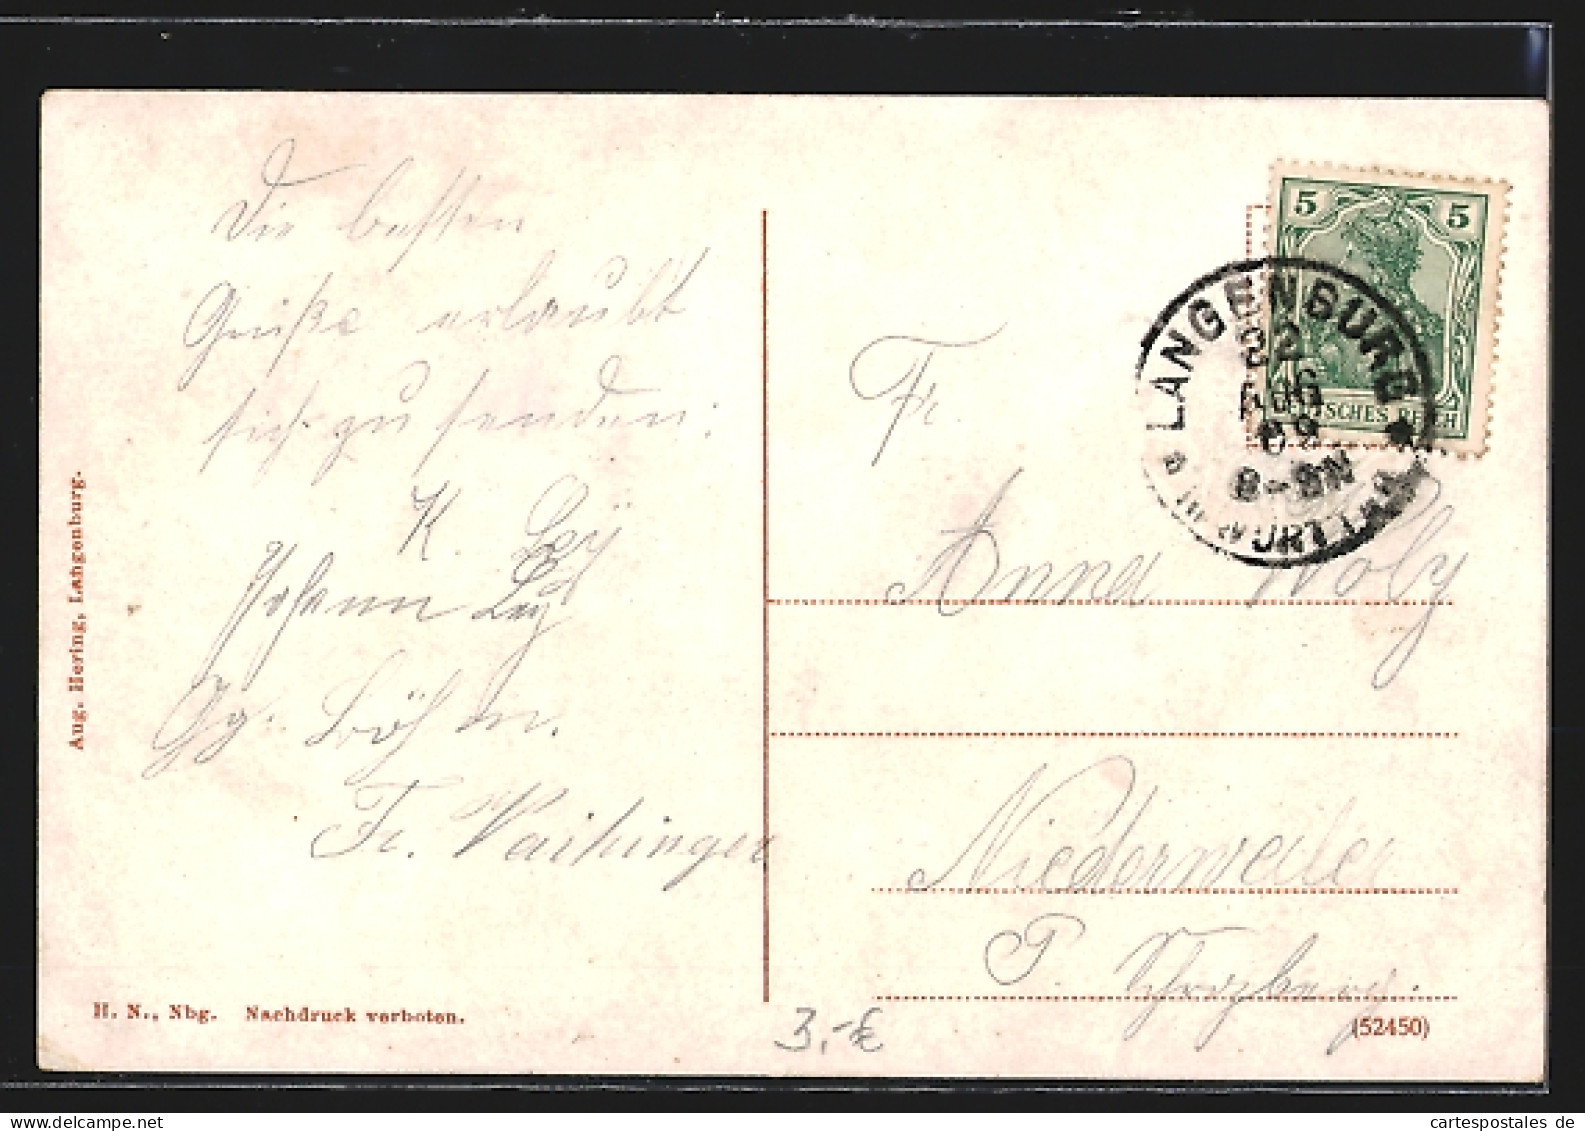 Die besten
Grüße erlaubt
sich zu senden:
K. Ley
Johann Ley
Gg. Böhm.
Fr. Vaihinger
Aug. Hering, Langenburg.
H. N., Nbg. Nachdruck verboten.
3,-€
5 5
DEUTSCHES REICH
LANGENBURG
AUG
09
8-9N
Fr.
Anna Wolz
Niederweiler
P. Schrozberg.
(52450)
cartespostales de